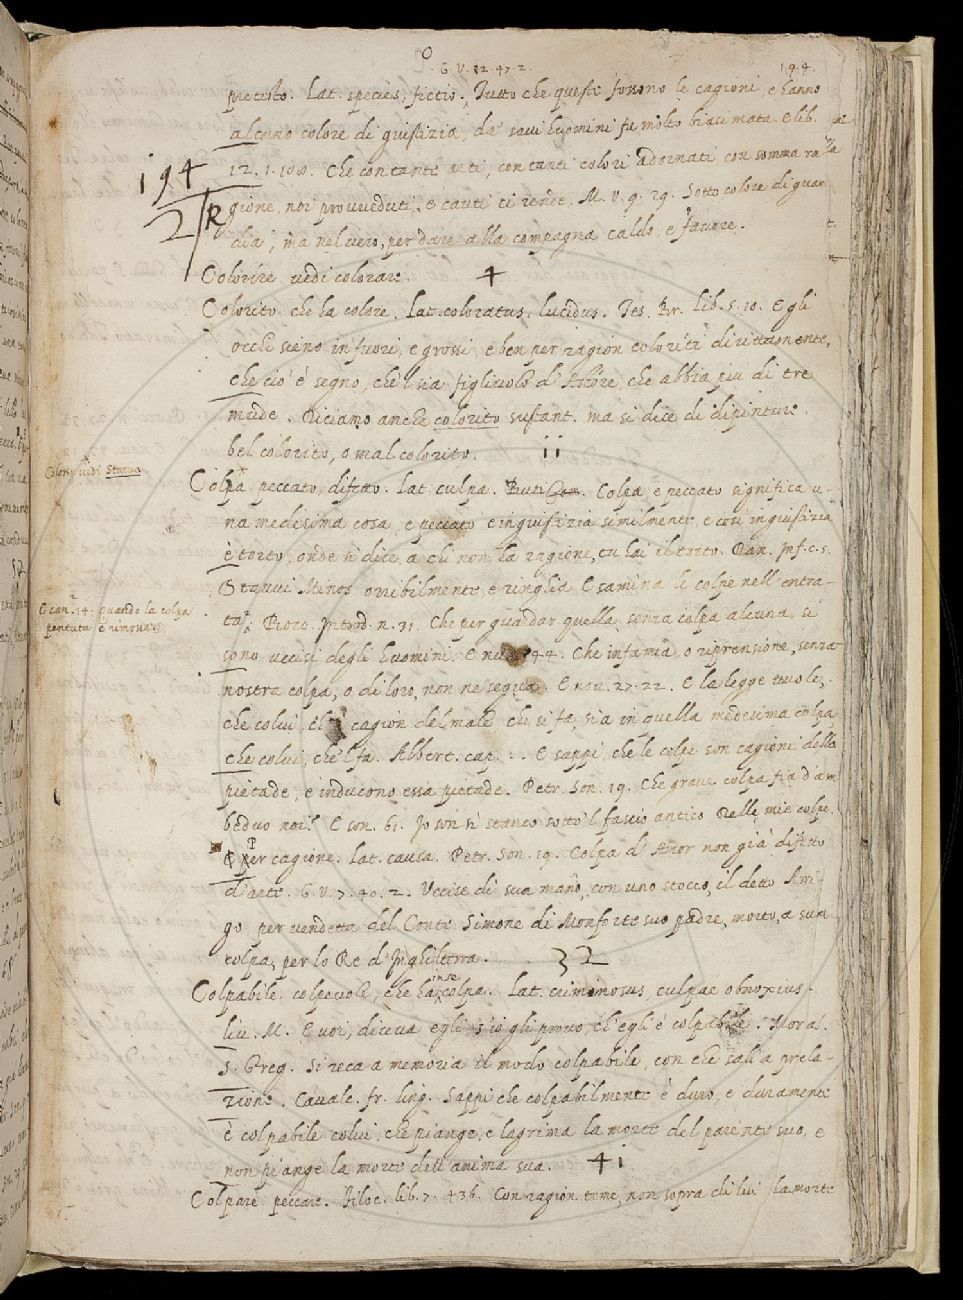 G. V. 12. 47. 2. 194.
pretesto. Lat. species, fictio. Tutto che queste fossono le cagioni, e hanno
alcuno colore di giustizia, da' savi huomini fu molto biasimata. E lib.
12. 1. 108. Che con tante arti, con tanti colori adornati con somma ra
194
2 R
gione, noi provveduti, e cauti ci rende. M. V. 9. 29. Sotto colore di guar
dia; ma nel vero, per dare alla compagna caldo, e favore.
Colorire vedi colorare. 4
Colorito che ha colore. Lat. coloratus, lucidus. Tes. Br. lib. 5. 10. E gli
occhi sieno in fuori, e grossi, e ben per ragion coloriti dirittamente,
che ciò è segno, che sia figliuolo d'Astore, che abbia più di tre
mude. Diciamo anche colorito sustant. ma si dice di dipinture
bel colorito, o mal colorito. ii
vedi Statua
Colpa peccato, difetto. Lat. culpa. Colpa, e peccato significa u-
na medesima cosa, e peccato e ingiustizia similmente, e così ingiustizia
è torto, onde si dice, a chi non ha ragione, tu hai il torto. Dan. Inf. c. 5.
Stavvi Minos orribilmente, e ringhia, Esamina le colpe nell'entra-
E can. 14. quando la colpa
pentuta è rimossa
ta. Bocc. Introd. n. 31. Che per guardar quella, senza colpa alcuna, si
sono uccisi degli huomini. E 44. Che infamia, o riprensione, senza
nostra colpa, o di loro, non ne segua. E nov. 27. 22. E la legge vuole,
che colui, è cagion del male che si fa, sia in quella medesima colpa,
che colui, che'l fa. Albert. cap. ... E sappi, che le colpe son cagioni della
pietade, e inducono essa pietade. Petr. Son. 19. Che grave colpa fia d'am
beduo noi. E son. 61. Io son sì stanco sotto'l fascio antico Delle mie colpe.
per cagione. Lat. causa. Petr. Son. 19. Colpa d'Amor non già difetto
d'arte. G. V. 7. 40. 2. Uccise di sua mano, con uno stocco, il detto Arri-
go, per vendetta del Conte Simone di Monforte suo padre, morto, a sua
colpa, per lo Re d'Inghilterra. 32
Colpabile colpevole, che ha inse colpa. Lat. criminosus, culpae obnoxius.
Liv. M. E voi, diceva egli, s'io gli provo, ch'egli è colpabile. Moral.
S. Greg. Si reca a memoria il modo colpabile, con che salì a prela-
zione. Cavalc. fr. ling. Sappi che colpabilmente è duro, e duramente
è colpabile colui, che piange, e lagrima la morte del parente suo, e
non piange la morte dell'anima sua. 4i
Colpare peccare. Filoc. lib. 7. 436. Con ragion teme, non sopra di lui la morte